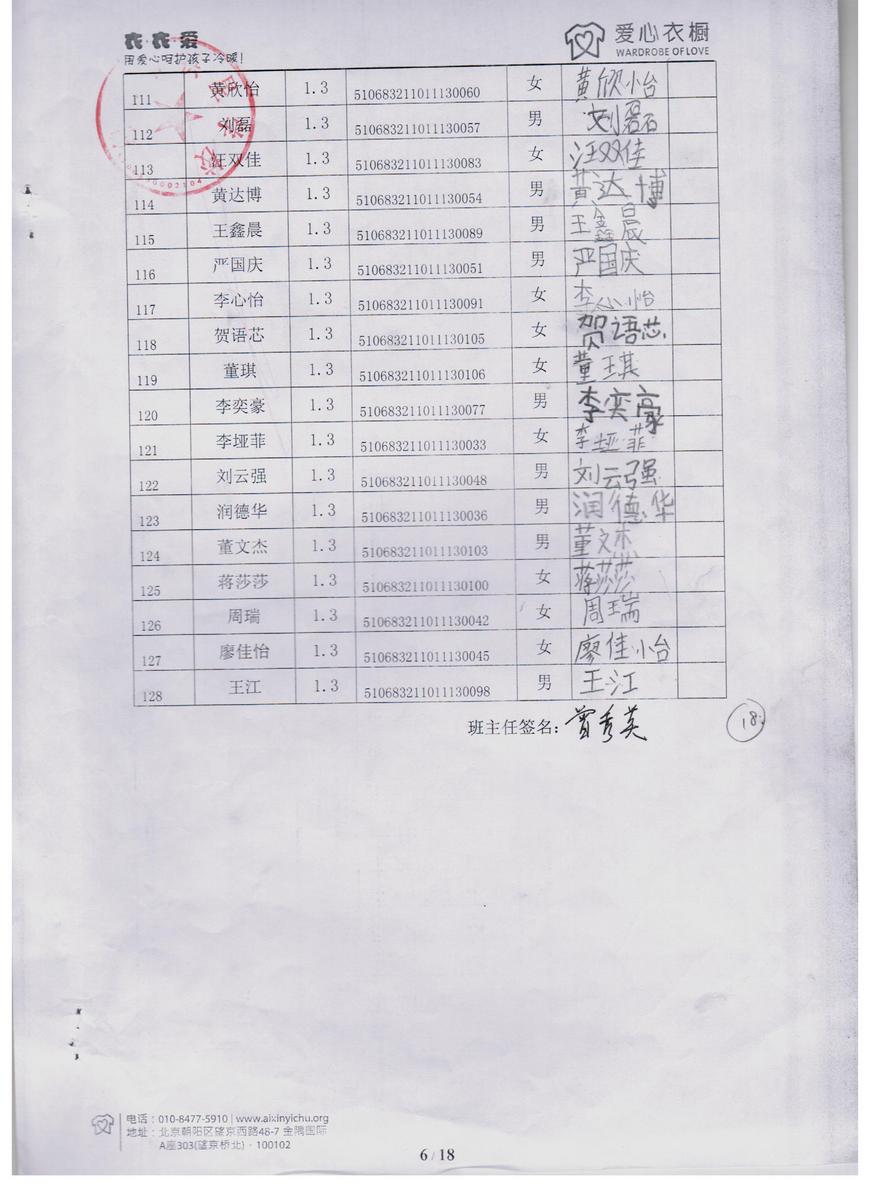 衣·衣·爱
用爱心呵护孩子冷暖!
爱心衣橱
WARDROBE OF LOVE
111 黄欣怡 1.3 510683211011130060 女 黄欣怡
112 刘磊 1.3 510683211011130057 男 刘磊
113 汪双佳 1.3 510683211011130083 女 汪双佳
114 黄达博 1.3 510683211011130054 男 黄达博
115 王鑫晨 1.3 510683211011130089 男 王鑫晨
116 严国庆 1.3 510683211011130051 男 严国庆
117 李心怡 1.3 510683211011130091 女 李心怡
118 贺语芯 1.3 510683211011130105 女 贺语芯
119 董琪 1.3 510683211011130106 女 董琪
120 李奕豪 1.3 510683211011130077 男 李奕豪
121 李垭菲 1.3 510683211011130033 女 李垭菲
122 刘云强 1.3 510683211011130048 男 刘云强
123 润德华 1.3 510683211011130036 男 润德华
124 董文杰 1.3 510683211011130103 男 董文杰
125 蒋莎莎 1.3 510683211011130100 女 蒋莎莎
126 周瑞 1.3 510683211011130042 女 周瑞
127 廖佳怡 1.3 510683211011130045 女 廖佳怡
128 王江 1.3 510683211011130098 男 王江
班主任签名: 曾秀英 18
电话:010-8477-5910 | www.aixinyichu.org
地址:北京朝阳区望京西路48-7 金隅国际
A座303(望京桥北)·100102
6 / 18